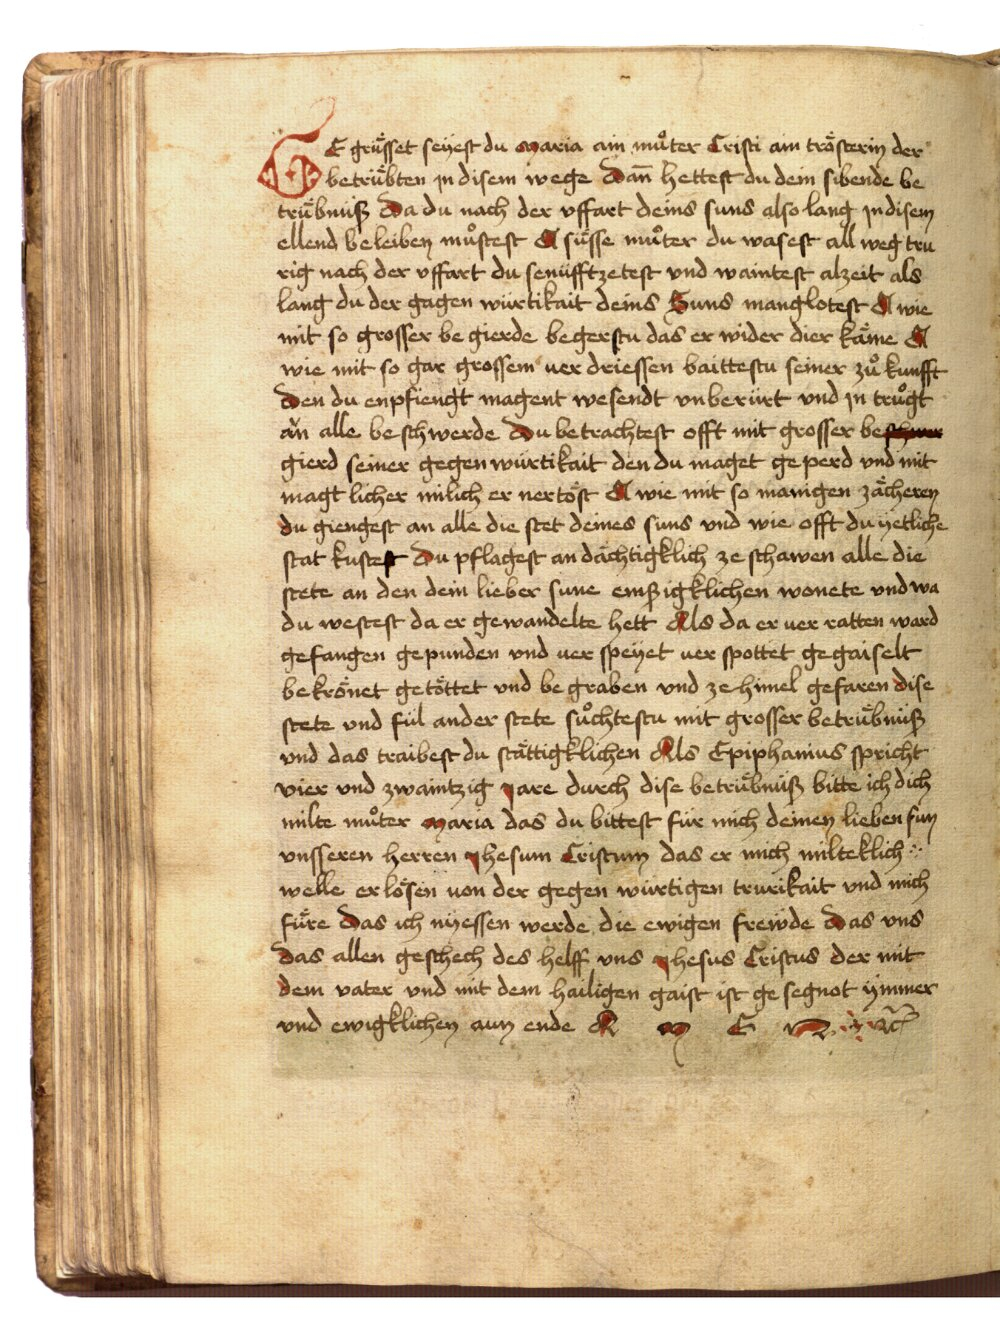 GE grüsset seyest du maria ain muͦter Cristi ain trösterin der
betrübten in disem wege Dan̄ hettest du dein sibende be
trübnüß Da du nach der vffart deins suns also lang in disem
ellend beleiben muͦstest A süsse muͦter du wasest all weg tru
rig nach der vffart du senüfftzetest vnd waintest alzeit als
lang du der gagen würtikait deins Suns manglotest A wie
mit so grosser be gierde begerstu das er wider dier käme A
wie mit so gar grossem verdriessen baittestu seiner zuͦ kunfft
Den du enpfiengt magent wesendt vnberürt vnd in truͦgt
an alle beschwerde Du betrachtest offt mit grosser beschwer
gierd seiner gegenwürtikait den du maget geperd vnd mit
magt licher milich er nertöst A wie mit so manigen zächeren
du giengest an alle die stet deines suns vnd wie offt du yetliche
stat kustest Du pflagest andächtigklich ze schawen alle die
stete an den dein lieber sune emßigklichen wonete vnd wa
du westest da er gewandelte hett Als da er ver ratten ward
gefangen gepunden vnd ver speyet ver spottet gegaiselt
bekrönet getöttet vnd be graben vnd ze himel gefaren dise
stete vnd fül ander stete suͦchtestu mit grosser betrübnüß
vnd das traibest du stättigklichen Als Epiphanius spricht
vier vnd zwaintzig jare durch dise betrübnüß bitte ich dich
milte muͦter maria das du bittest für mich deinen lieben sun
vnsseren herren jhesum Cristum das er mich milteklich
welle erlösen von der gegen würtigen trurikait vnd mich
füre Das ich nyessen werde die ewigen frewde Das vns
Das allen geschech des helff vns jhesus Cristus der mit
dem vater vnd mit dem hailigen gaist ist gesegnot ymmer
vnd ewigklichen aun ende A M E N